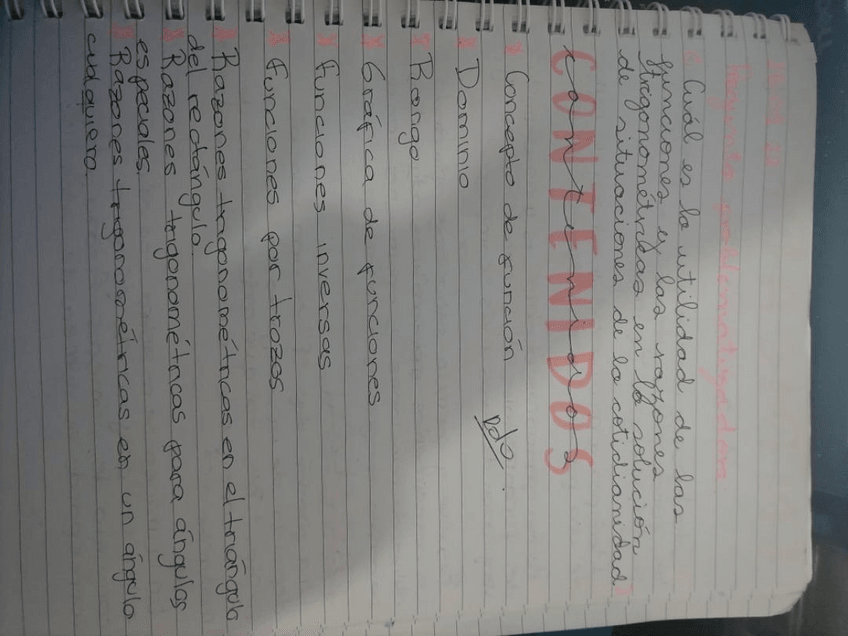 Pregunta problematizadora
¿Cuál es la utilidad de las
funciones y las razones
trigonométricas en la solución
de situaciones de la cotidianidad?
CONTENIDOS
contenidos
* Concepto de función
* Dominio
* Rango
* Gráfica de funciones
* Funciones inversas
* Funciones por trozos
* Razones trigonométricas en el triángulo
del rectángulo.
* Razones trigonométricas para ángulos
especiales.
* Razones trigonométricas en un ángulo
cualquiera